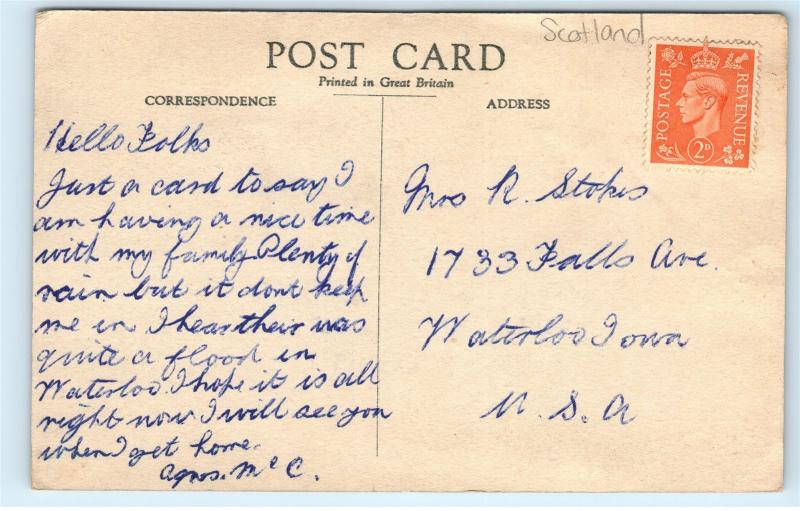 Scotland
POST CARD
Printed in Great Britain
CORRESPONDENCE
ADDRESS
POSTAGE
REVENUE
2D
Hello Folks
Just a card to say I
am having a nice time
with my family Plenty of
rain but it dont keep
me in I hear their was
quite a flood in
Waterloo I hope it is all
right now I will see you
when I get home.
Agnes. McC.
Mrs R. Stokes
1733 Falls Ave.
Waterloo Iowa
U. S. A